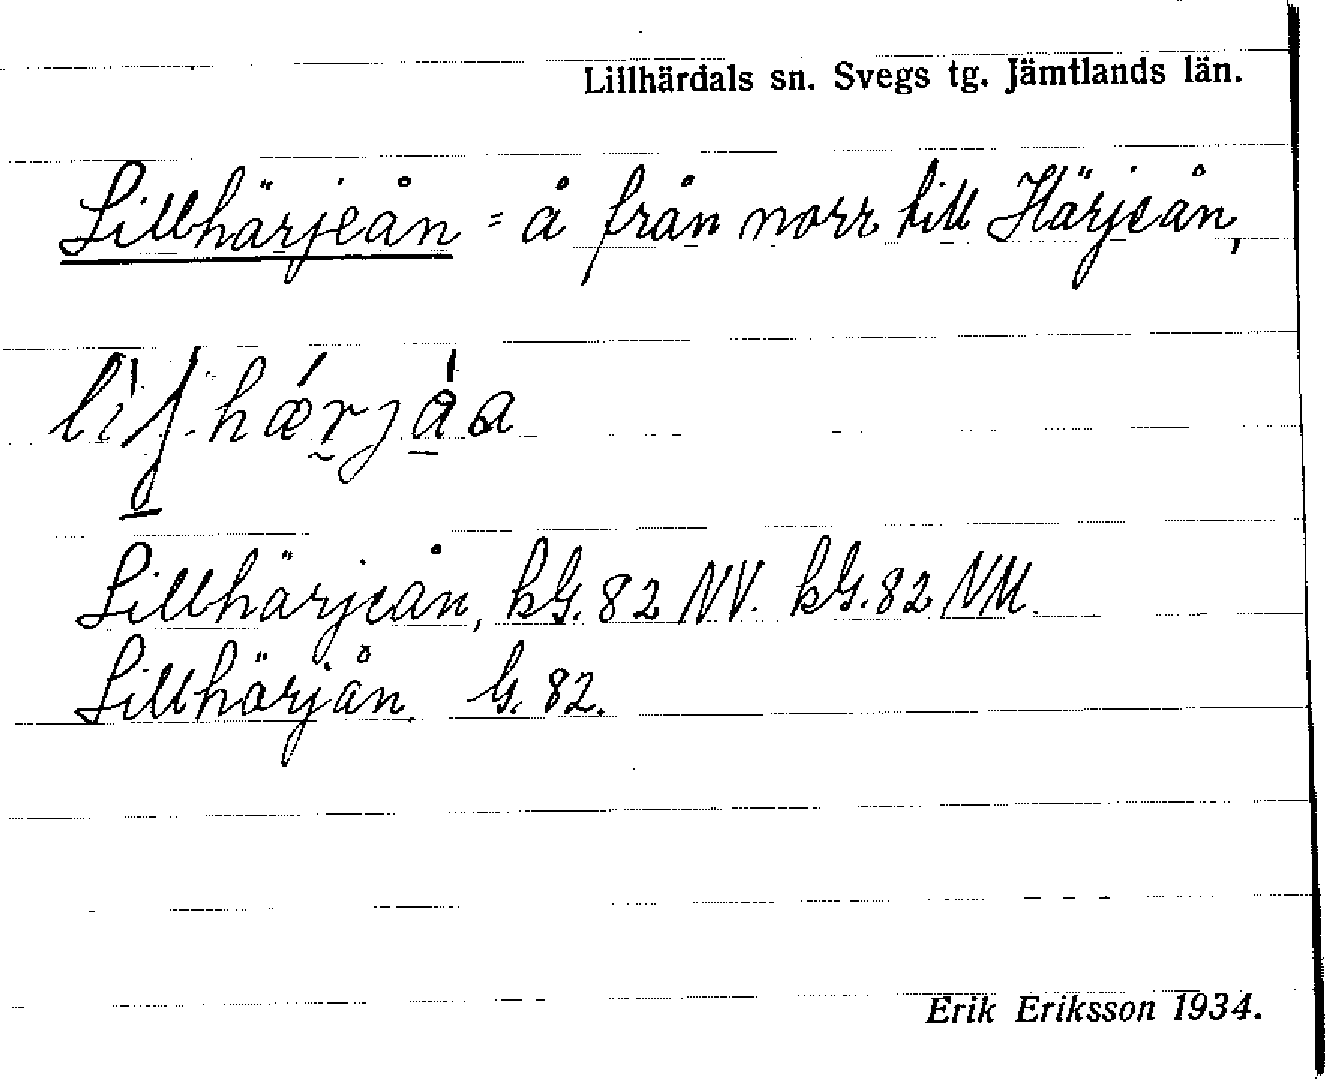 Lillhärdals sn. Svegs tg. Jämtlands län.
Lillhärjeån = å från norr till Härjeån,
Lillhärjeån, kG. 82 NV. kG. 82 NM.
Lillhärjån. G. 82.
Erik Eriksson 1934.